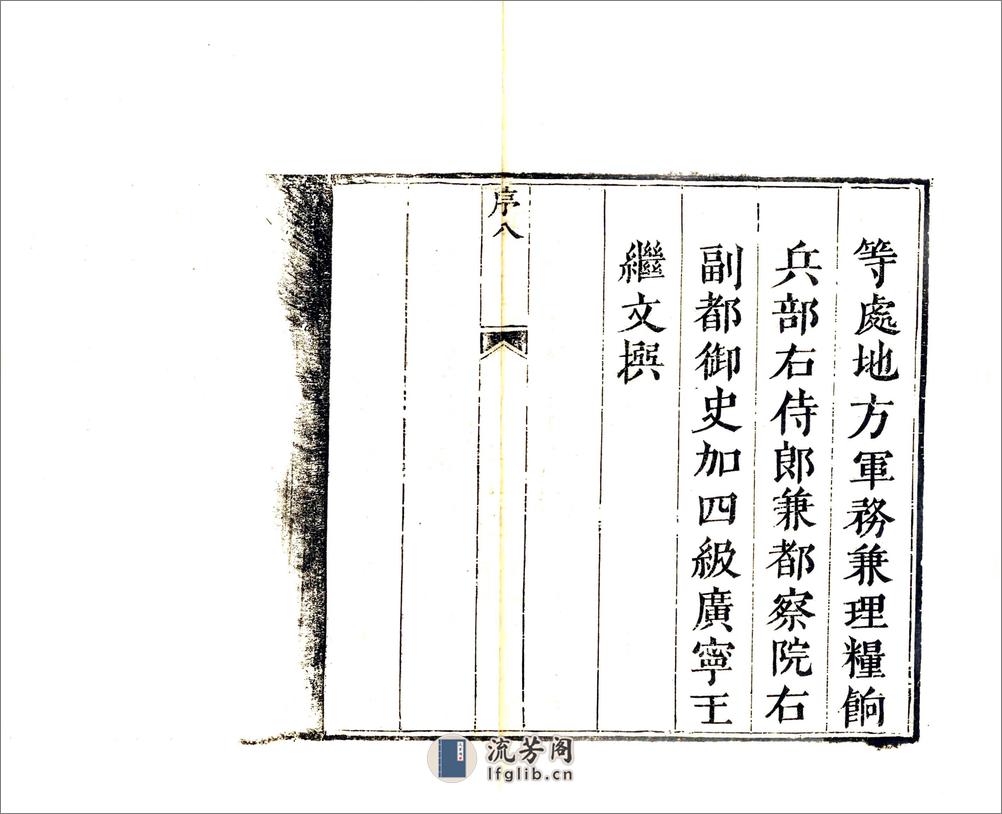 等處地方軍務兼理糧餉
兵部右侍郎兼都察院右
副都御史加四級廣寧王
繼文撰
序八
流芳阁
lfglib.cn